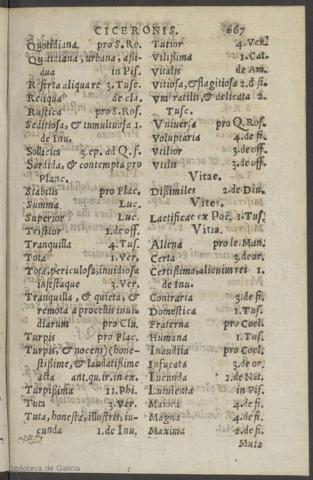 CICERONIS. 667
Quotidiana pro S. Ro.
Quotidiana, urbana, aßi-
dua in Pis.
Referta aliqua re 3. Tusc.
Reliqua de cla.
Rustica pro S. Ros.
Seditiosa, & tumultuosa 1.
de Inu.
Sollicita 3. ep. ad Q. f.
Sordida, & contempta pro
Planc.
Stabilis pro Flac.
Summa Luc.
Superior Luc.
Tristior 1. de off.
Tranquilla 4. Tus.
Tota 1. Ver.
Tota, periculosa, inuidiosa
infestaque 3. Ver.
Tranquilla, & quieta, &
remota à procellis inui-
diarum pro Clu.
Turpis pro Flac.
Turpis, & nocens) (hone-
stißime, & laudatißime
acta ant. qu. ir. in ex.
Turpißima 11. Phi.
Tuta 3. Ver.
Tuta, honesta, illustris, iu-
cunda 1. de Inu.
Tutior 4. Ver.
Vilißima 1. Cat.
Vitalis de Am.
Vitiosa, & flagitiosa 2. d. fi.
Vmbratilis, & delicata 2.
Tusc.
Vniuersa pro Q. Ros.
Voluptaria 4. de fi.
Vtilior 3. de off.
Vtilis 3. de off.
Vitae.
Dißimiles 2. de Diu.
Vites.
Laetificae ex Poë. 1. Tus.
Vitia.
Aliena pro le. Man.
Certa 3. de or.
Certißima, alicuius rei 1.
de Inu.
Contraria 3. de fi.
Domestica 1. Tus.
Fraterna pro Coel.
Humana 1. Tus.
Inaudita pro Coel.
Infucata 3. de or.
Iucunda 1. de Nat.
Lutulenta in Pis.
Maiora 4. de fi.
Magna 4. de fi.
Maxima 2. de fi.
Muta
Biblioteca de Galicia